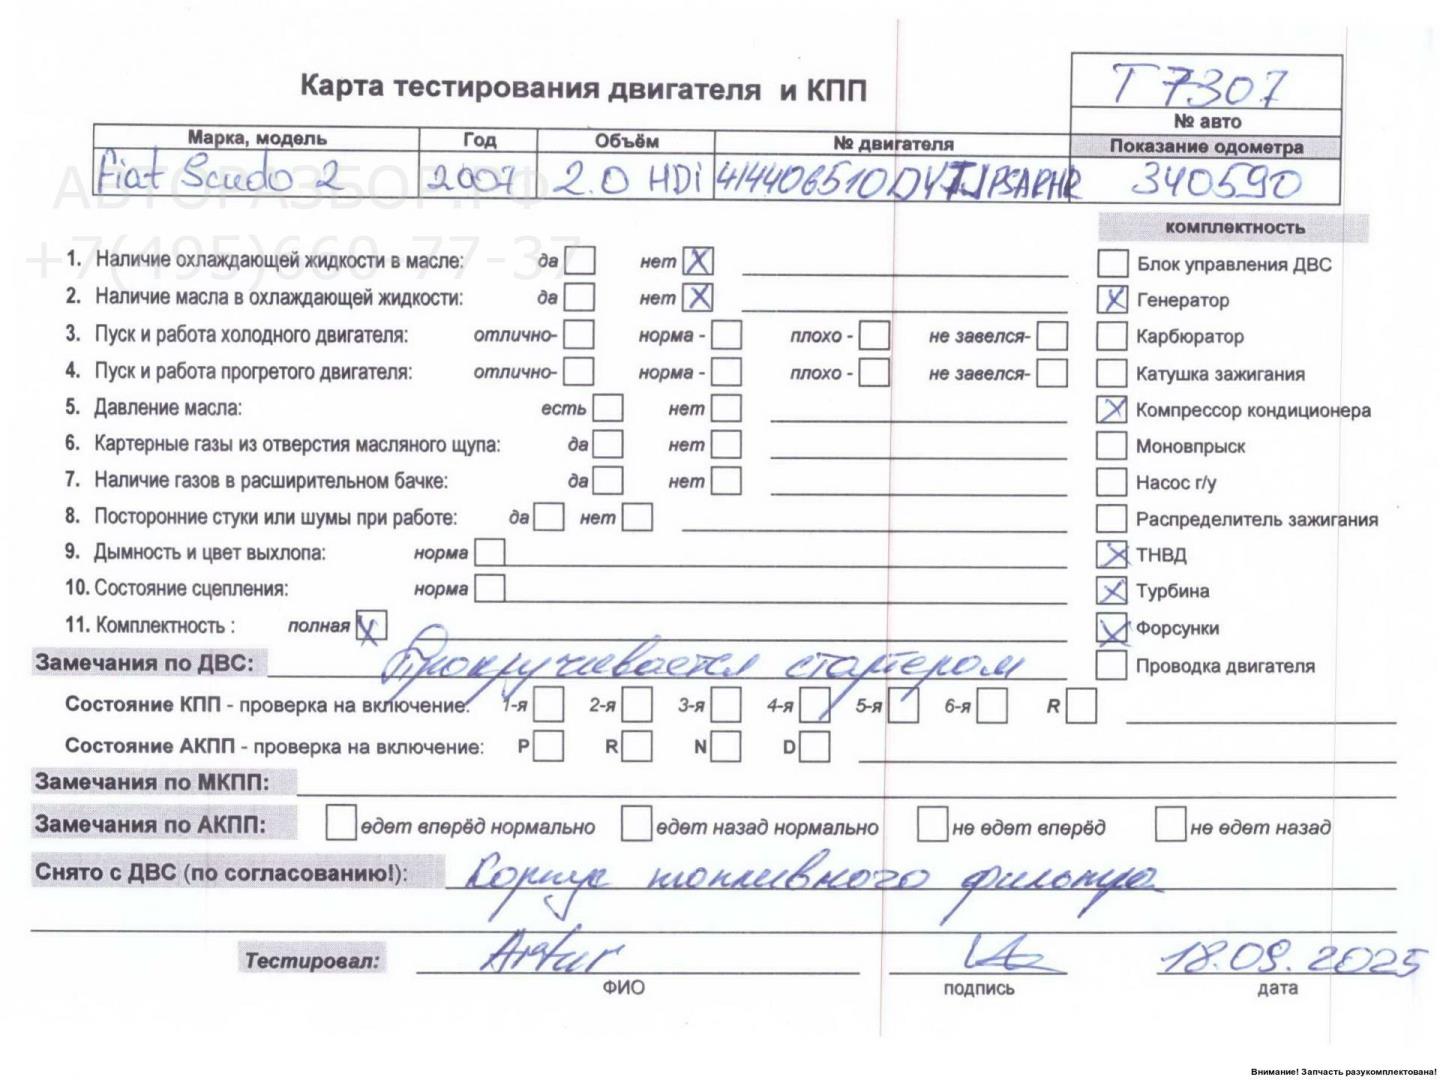 Карта тестирования двигателя и КПП
T 7307
№ авто
Марка, модель Год Объём № двигателя Показание одометра
Fiat Scudo 2 2007 2.0 HDi 340590
АВТОРАЗБОР.РФ
+7(495)660-77-37
комплектность
1. Наличие охлаждающей жидкости в масле: да нет X Блок управления ДВС
2. Наличие масла в охлаждающей жидкости: да нет X X Генератор
3. Пуск и работа холодного двигателя: отлично- норма - плохо - не завелся- Карбюратор
4. Пуск и работа прогретого двигателя: отлично- норма - плохо - не завелся- Катушка зажигания
5. Давление масла: есть нет X Компрессор кондиционера
6. Картерные газы из отверстия масляного щупа: да нет Моновпрыск
7. Наличие газов в расширительном бачке: да нет Насос г/у
8. Посторонние стуки или шумы при работе: да нет Распределитель зажигания
9. Дымность и цвет выхлопа: норма X ТНВД
10. Состояние сцепления: норма X Турбина
11. Комплектность : полная X X Форсунки
Замечания по ДВС: Прокручивается стартером Проводка двигателя
Состояние КПП - проверка на включение: 1-я 2-я 3-я 4-я 5-я 6-я R
Состояние АКПП - проверка на включение: P R N D
Замечания по МКПП:
Замечания по АКПП: едет вперёд нормально едет назад нормально не едет вперёд не едет назад
Снято с ДВС (по согласованию!): Корпус топливного фильтра
Тестировал: Artur 18.09.2025
ФИО подпись дата
Внимание! Запчасть разукомплектована!